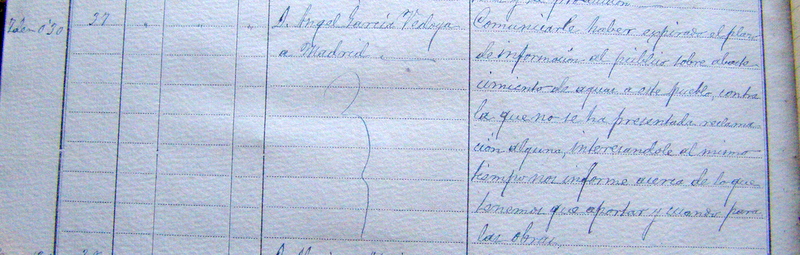 27 " " " D. Angel García Vedoya Comunicarle haber expirado el plazo
a Madrid. de información al público sobre abaste
cimiento de aguas a este pueblo, contra
la que no se ha presentado reclama
ción alguna, interesandole al mismo
tiempo nos informe acerca de lo que
tenemos que aportar y cuando para
las obras.